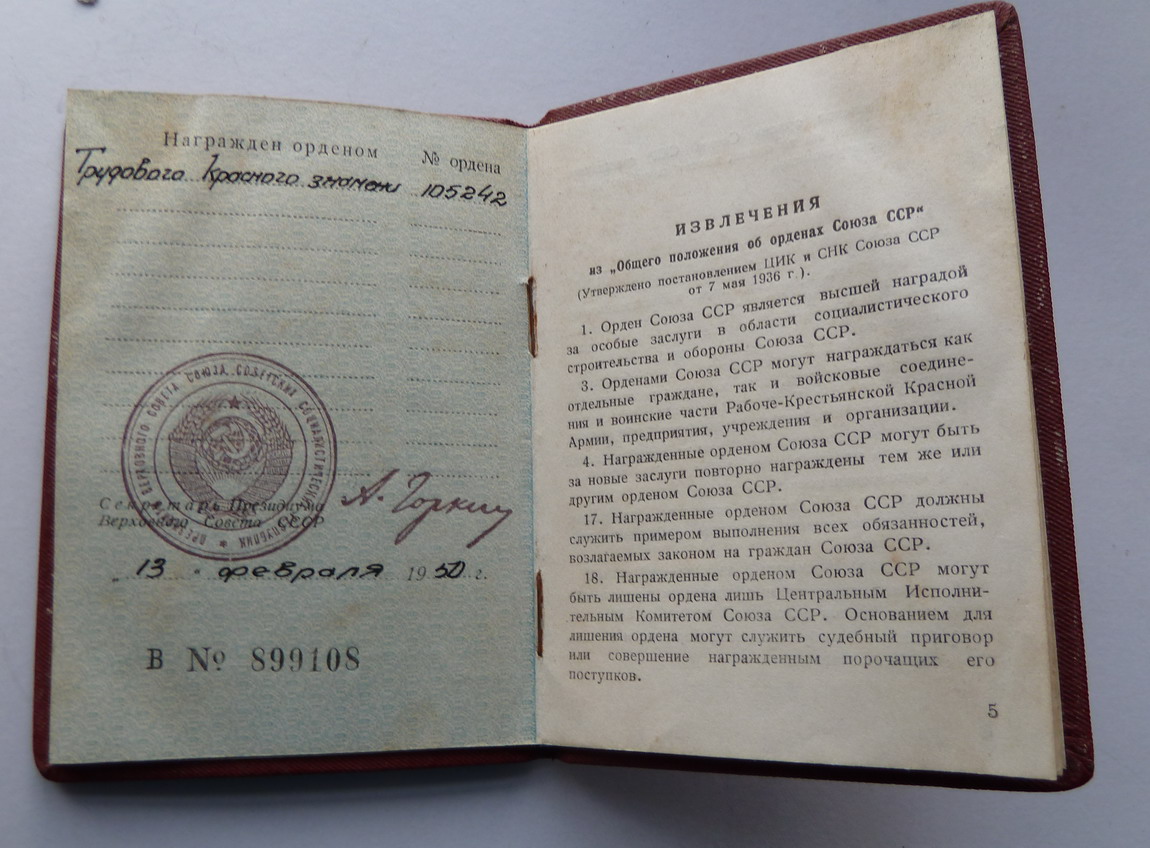 Награжден орденом № ордена
Трудового Красного знамени 105242
ПРЕЗИДИУМ ВЕРХОВНОГО СОВЕТА СОЮЗА СОВЕТСКИХ СОЦИАЛИСТИЧЕСКИХ РЕСПУБЛИК
Секретарь Президиума
Верховного Совета СССР
А. Горкин
„13“ февраля 1950 г.
В № 899108
ИЗВЛЕЧЕНИЯ
из „Общего положения об орденах Союза ССР“
(Утверждено постановлением ЦИК и СНК Союза ССР
от 7 мая 1936 г.).
1. Орден Союза ССР является высшей наградой
за особые заслуги в области социалистического
строительства и обороны Союза ССР.
3. Орденами Союза ССР могут награждаться как
отдельные граждане, так и войсковые соедине-
ния и воинские части Рабоче-Крестьянской Красной
Армии, предприятия, учреждения и организации.
4. Награжденные орденом Союза ССР могут быть
за новые заслуги повторно награждены тем же или
другим орденом Союза ССР.
17. Награжденные орденом Союза ССР должны
служить примером выполнения всех обязанностей,
возлагаемых законом на граждан Союза ССР.
18. Награжденные орденом Союза ССР могут
быть лишены ордена лишь Центральным Исполни-
тельным Комитетом Союза ССР. Основанием для
лишения ордена могут служить судебный приговор
или совершение награжденным порочащих его
поступков.
5